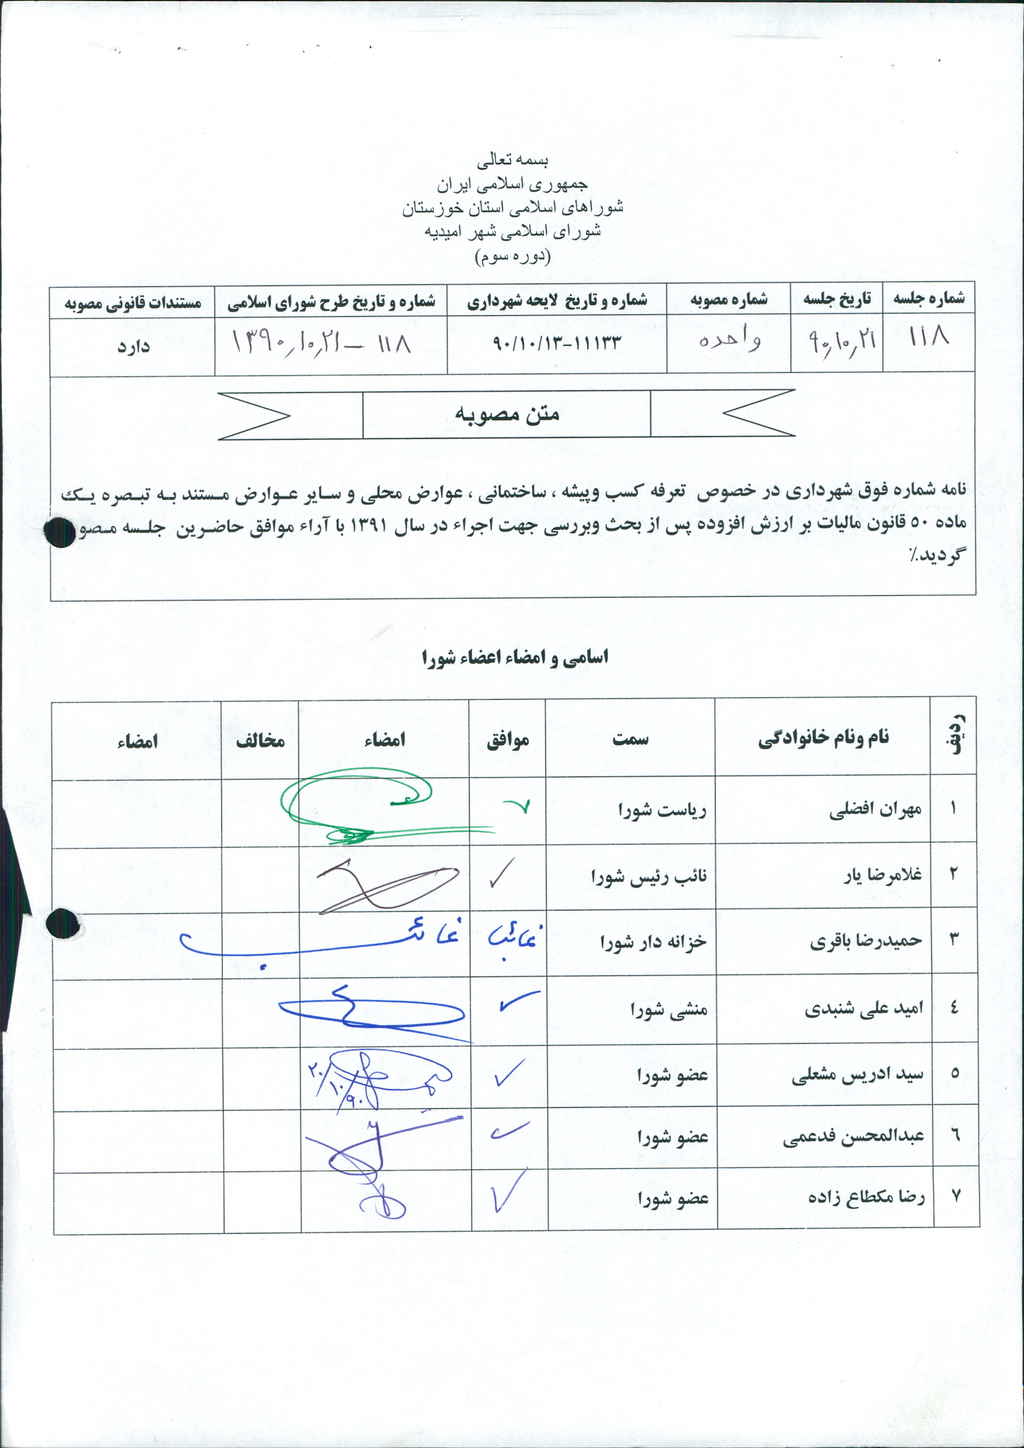 بسمه تعالی
جمهوری اسلامی ایران
شوراهای اسلامی استان خوزستان
شورای اسلامی شهر امیدیه
(دوره سوم)
شماره جلسه تاریخ جلسه شماره مصوبه شماره و تاریخ لایحه شهرداری شماره و تاریخ طرح شورای اسلامی مستندات قانونی مصوبه
۱۱۸ ۹۰٫۱۰٫۲۱ واحده ۹۰/۱۰/۱۳-۱۱۱۳۳ ۱۱۸ – ۱۳۹۰٫۱۰٫۲۱ دارد
متن مصوبه
نامه شماره فوق شهرداری در خصوص تعرفه کسب وپیشه ، ساختمانی ، عوارض محلی و سایر عوارض مستند به تبصره یک
ماده ۵۰ قانون مالیات بر ارزش افزوده پس از بحث وبررسی جهت اجراء در سال ۱۳۹۱ با آراء موافق حاضرین جلسه مصو
گردید.٪
اسامی و امضاء اعضاء شورا
ردیف نام ونام خانوادگی سمت موافق امضاء مخالف امضاء
۱ مهران افضلی ریاست شورا ✓
۲ غلامرضا یار نائب رئیس شورا ✓
۳ حمیدرضا باقری خزانه دار شورا غائب غائب
۴ امید علی شنبدی منشی شورا ✓
۵ سید ادریس مشعلی عضو شورا ✓ ۲۰/۱۰/۹۰
۶ عبدالمحسن فدعمی عضو شورا ✓
۷ رضا مکطاع زاده عضو شورا ✓